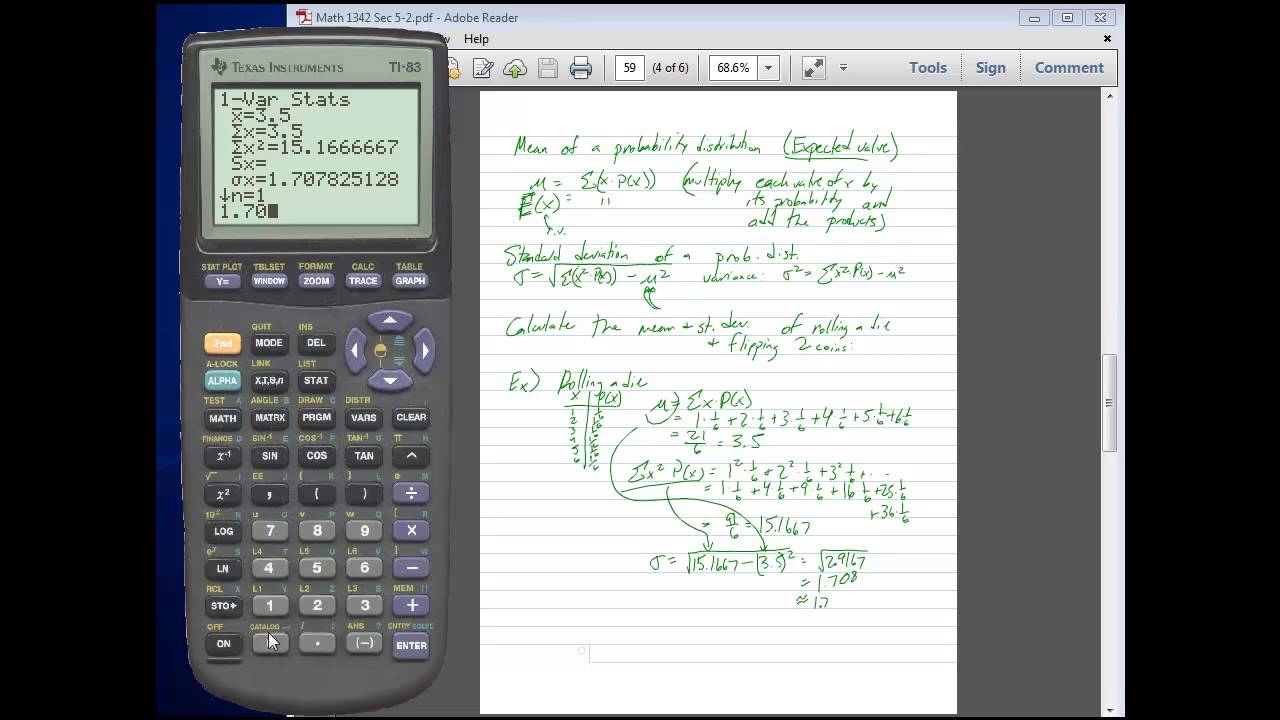 Math 1342 Sec 5-2.pdf - Adobe Reader
Help
59 (4 of 6) 68.6% Tools Sign Comment
TEXAS INSTRUMENTS TI-83
1-Var Stats
x̄=3.5
Σx=3.5
Σx²=15.1666667
Sx=
σx=1.707825128
↓n=1
1.70
STAT PLOT TBLSET FORMAT CALC TABLE
Y= WINDOW ZOOM TRACE GRAPH
QUIT INS
2nd MODE DEL
A-LOCK LINK LIST
ALPHA X,T,θ,n STAT
TEST A ANGLE B DRAW C DISTR
MATH MATRX PRGM VARS CLEAR
FINANCE D SIN⁻¹ E COS⁻¹ F TAN⁻¹ G π H
x⁻¹ SIN COS TAN ^
√ I EE J { K } L e M
x² , ( ) ÷
10ˣ N u O v P w Q [ R
LOG 7 8 9 ×
eˣ S L4 T L5 U L6 V ] W
LN 4 5 6 −
RCL X L1 Y L2 Z L3 θ MEM "
STO▸ 1 2 3 +
OFF CATALOG i : ANS ? ENTRY SOLVE
ON . (−) ENTER
Mean of a probability distribution (Expected value)
μ = Σ(x·P(x)) (multiply each value of x by
E(x) = " its probability and
r.v. add the products)
Standard deviation of a prob. dist.
σ = √Σ(x²·P(x)) − μ² variance: σ² = Σx²·P(x) − μ²
Calculate the mean + st. dev. of rolling a die
+ flipping 2 coins:
Ex) Rolling a die
x P(x)
1 1/6
2 1/6
3 1/6
4 1/6
5 1/6
6 1/6
μ = Σx·P(x)
= 1·1/6 + 2·1/6 + 3·1/6 + 4·1/6 + 5·1/6 + 6·1/6
= 21/6 = 3.5
Σx²P(x) = 1²·1/6 + 2²·1/6 + 3²·1/6 + ...
= 1·1/6 + 4·1/6 + 9·1/6 + 16·1/6 + 25·1/6
+ 36·1/6
= 91/6 = 15.1667
σ = √15.1667 − (3.5)² = √2.9167
= 1.708
≈ 1.7